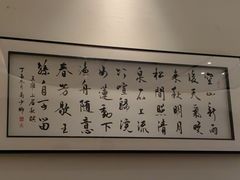 空山新雨
後天氣晚
來秋明月
松間照清
泉石上流
竹喧歸浣
女蓮動下
漁舟隨意
春芳歇王
孫自可留
王維山居秋暝